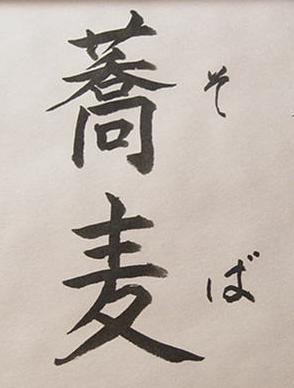 蕎麦
そば